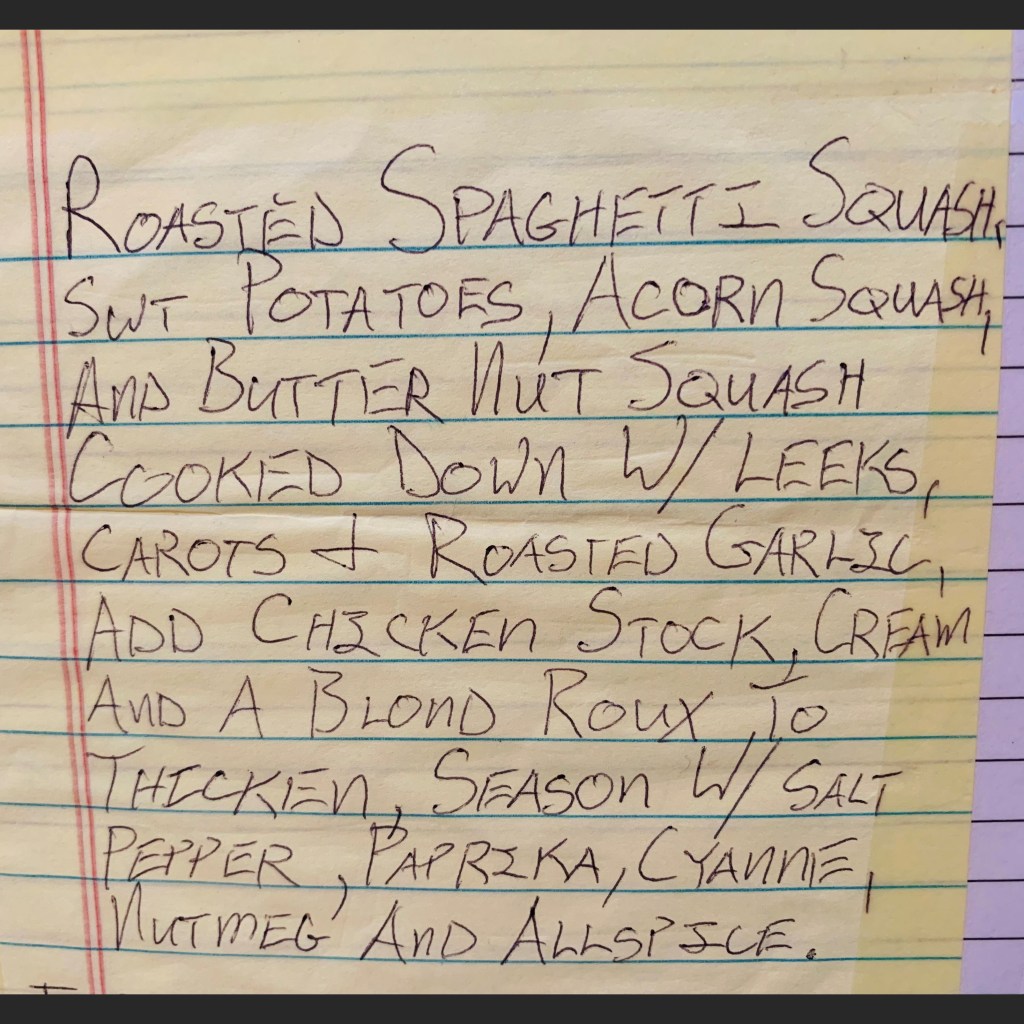 Roasted Spaghetti Squash,
Swt Potatoes, Acorn Squash,
And Butter Nut Squash
Cooked Down W/ Leeks,
Carots + Roasted Garlic,
Add Chicken Stock, Cream
And A Blond Roux To
Thicken, Season W/ Salt
Pepper, Paprika, Cyanne,
Nutmeg And Allspice.